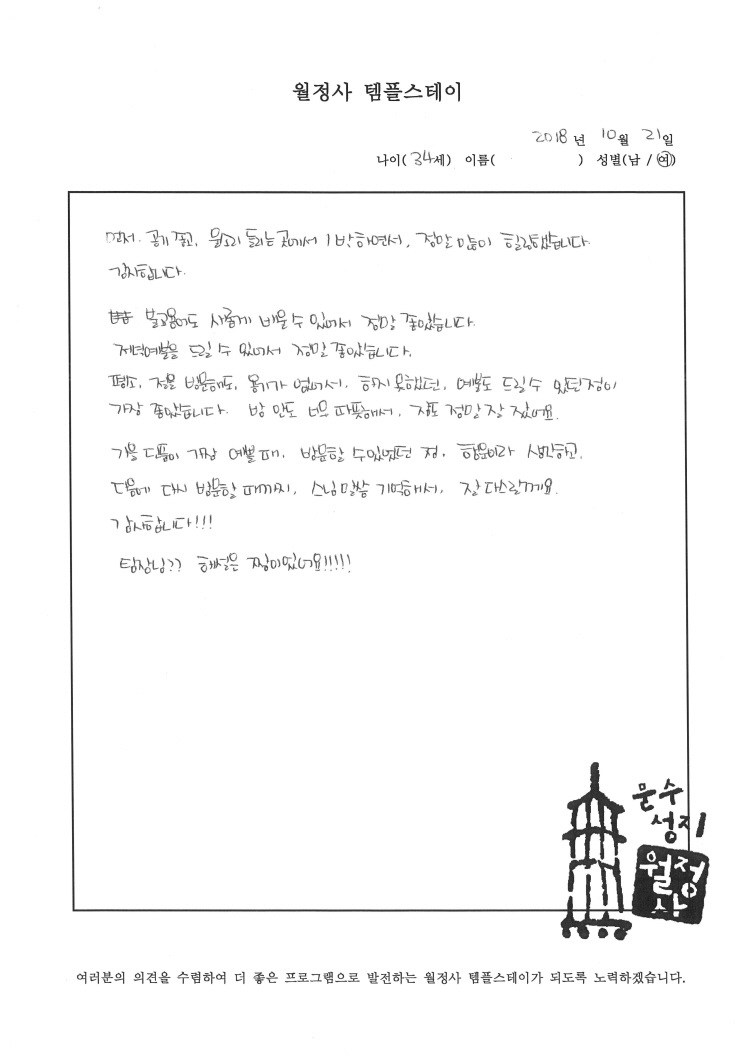 월정사 템플스테이
2018 년 10 월 21 일
나이( 34세) 이름( ) 성별(남 / 여)
먼저. 공기 좋고, 물소리 들리는 곳에서 1박하면서, 정말 많이 힐링했습니다.
감사합니다.
불교용어도 새롭게 배울 수 있어서 정말 좋았습니다.
저녁예불을 드릴 수 있어서 정말 좋았습니다.
평소, 절을 방문해도, 용기가 없어서, 하지 못했던, 예불도 드릴 수 있던 점이
가장 좋았습니다. 방 안도 너무 따뜻해서, 잠도 정말 잘 잤어요.
가을 단풍이 가장 예쁠 때, 방문할 수 있었던 점, 행운이라 생각하고.
다음에 다시 방문할 때까지, 스님 말씀 기억해서, 잘 다스릴께요.
감사합니다!!!
팀장님?? 해설은 짱이었어요!!!!!
문수
성지
월정
사
여러분의 의견을 수렴하여 더 좋은 프로그램으로 발전하는 월정사 템플스테이가 되도록 노력하겠습니다.